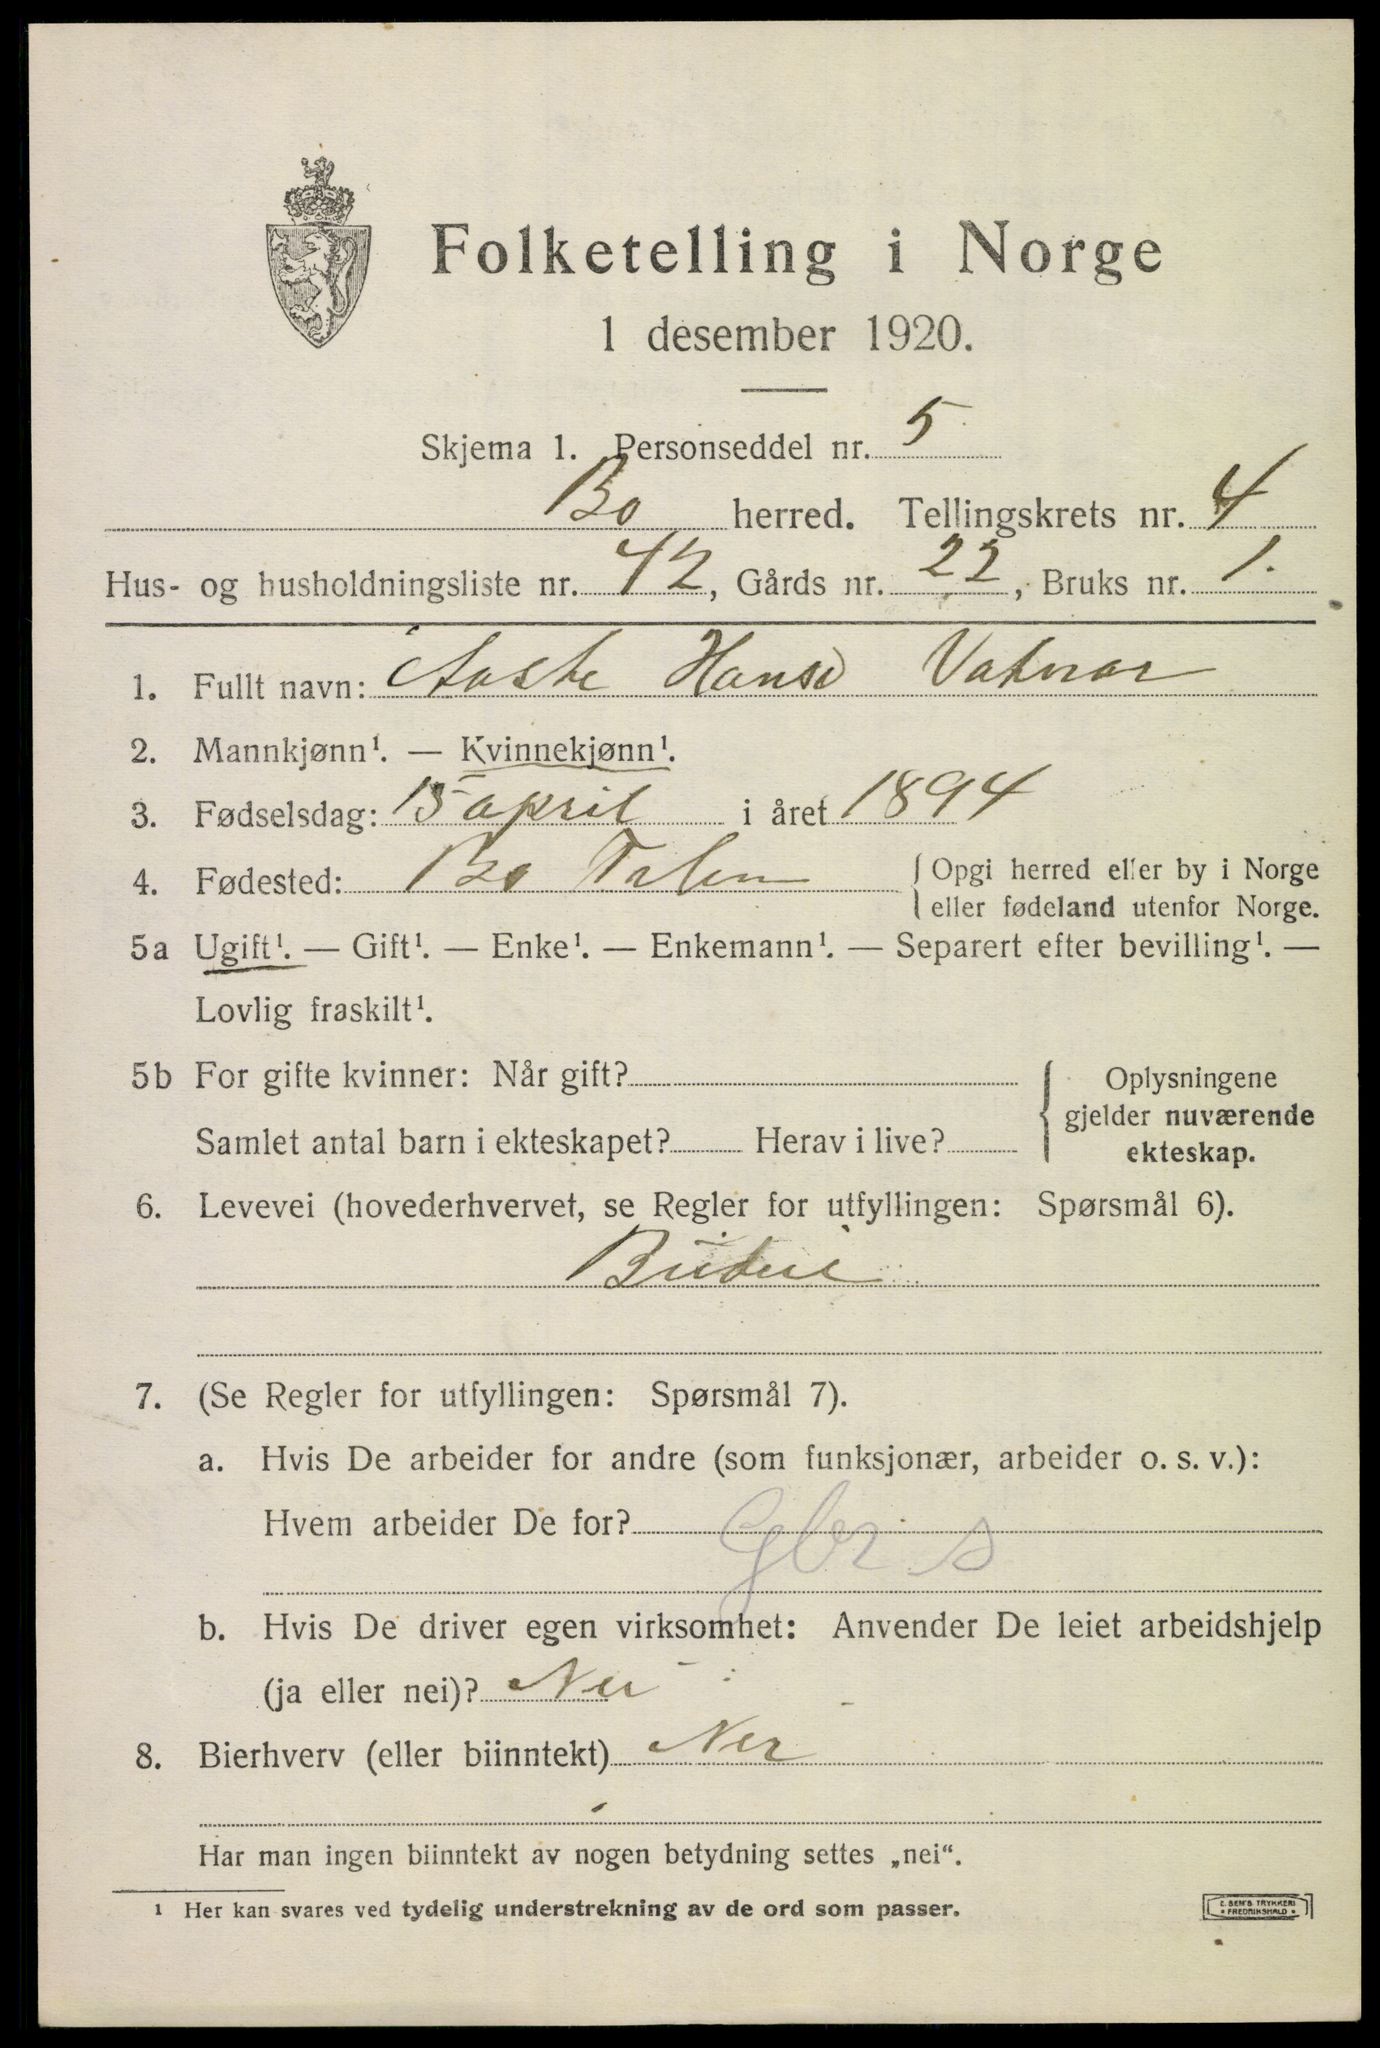 Folketelling i Norge
1 desember 1920.
Skjema 1. Personseddel nr. 5
Bo herred. Tellingskrets nr. 4
Hus- og husholdningsliste nr. 42, Gårds nr. 22, Bruks nr. 1.
1. Fullt navn: Aaste Hansd Vatnar
2. Mannkjønn¹. — Kvinnekjønn¹.
3. Fødselsdag: 15 april i året 1894
4. Fødested: Bo Telem { Opgi herred eller by i Norge
eller fødeland utenfor Norge.
5a Ugift¹. — Gift¹. — Enke¹. — Enkemann¹. — Separert efter bevilling¹. —
Lovlig fraskilt¹.
5b For gifte kvinner: Når gift?
Samlet antal barn i ekteskapet? Herav i live?
Oplysningene
gjelder nuværende
ekteskap.
6. Levevei (hovederhvervet, se Regler for utfyllingen: Spørsmål 6).
Budeie
7. (Se Regler for utfyllingen: Spørsmål 7).
a. Hvis De arbeider for andre (som funksjonær, arbeider o. s. v.):
Hvem arbeider De for? Gbr s
b. Hvis De driver egen virksomhet: Anvender De leiet arbeidshjelp
(ja eller nei)? Nei
8. Bierhverv (eller biinntekt) Nei
Har man ingen biinntekt av nogen betydning settes „nei“.
¹ Her kan svares ved tydelig understrekning av de ord som passer.
E. SEM'S TRYKKERI
• FREDRIKSHALD •